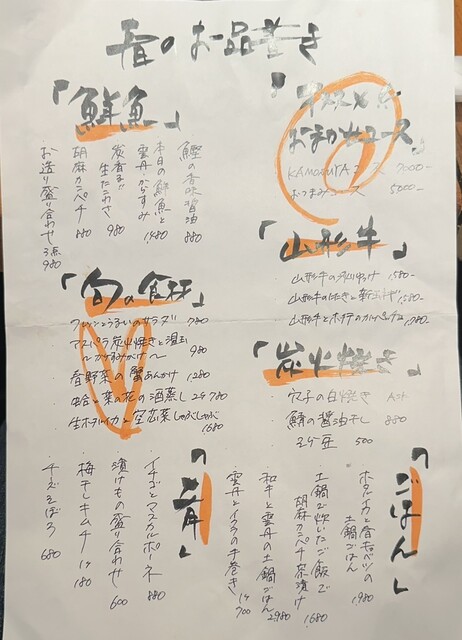 春のお品書き
「鮮魚」
鰹の香味醤油 880
本日の鮮魚と
雲丹からすみ 1480
炭香る
生たこわさ 980
胡麻カンパチ 880
お造り盛り合わせ 3点
980
おすすめ
おまかせコース
KAMOMIYA コース 7000-
おつまみコース 5000-
「山形牛」
山形牛の 1580-
山形牛のたたきと新玉ネギ 1580-
山形牛とホタテのカルパッチョ 1780-
「旬の食材」
うるいのサラダ 780
アスパラ炭火焼きと温玉
980
春野菜の蟹あんかけ 1,280
蛤と菜の花の酒蒸し 2ケ 780
生ホタルイカと空芯菜しゃぶしゃぶ
1680
「炭火焼き」
穴子の白焼き
鯖の醤油干し 880
そら豆 500
「ごはん」
ホタルイカと春キャベツの
土鍋ごはん 1980
土鍋で炊いたご飯で
胡麻カンパチ茶漬け 1680
和牛と雲丹の土鍋ごはん 2980
雲丹とイクラの手巻き 1ケ 700
「肴」
イチゴとマスカルポーネ 880
漬けもの盛り合わせ 600
梅干しキムチ 1ケ 180
チーズそぼろ 680